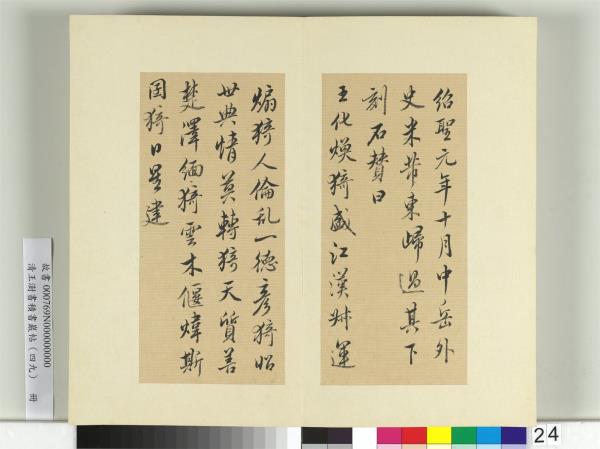 紹聖元年十月中岳外
史米芾東歸過其下
刻石贊曰
王化煥猗盛江漢猋運
煽猗人倫亂一德彥猗昭
世典情莫轉猗天質善
楚澤緬猗雲木偃煒斯
囯猗日星建
故書000769N000000000
清王澍書積書巖帖（四九） 冊
24